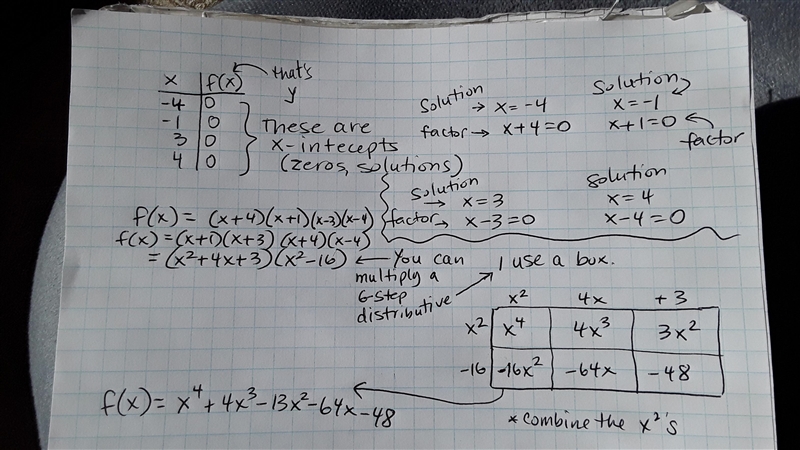 x | f(x) ← that's
y
-4 | 0
-1 | 0
3 | 0
4 | 0
These are
x-intecepts
(zeros, solutions)
Solution
→ x = -4
factor → x+4=0
Solution
x = -1
x+1=0 ← factor
solution
→ x = 3
factor → x-3=0
solution
x = 4
x-4=0
f(x) = (x+4)(x+1)(x-3)(x-4)
f(x) = (x+1)(x+3)(x+4)(x-4)
= (x²+4x+3)(x²-16) ← You can
multiply a
6-step
distributive
I use a box.
x² 4x +3
x² | x⁴ | 4x³ | 3x²
-16 | -16x² | -64x | -48
f(x) = x⁴+4x³-13x²-64x-48
*combine the x²'s